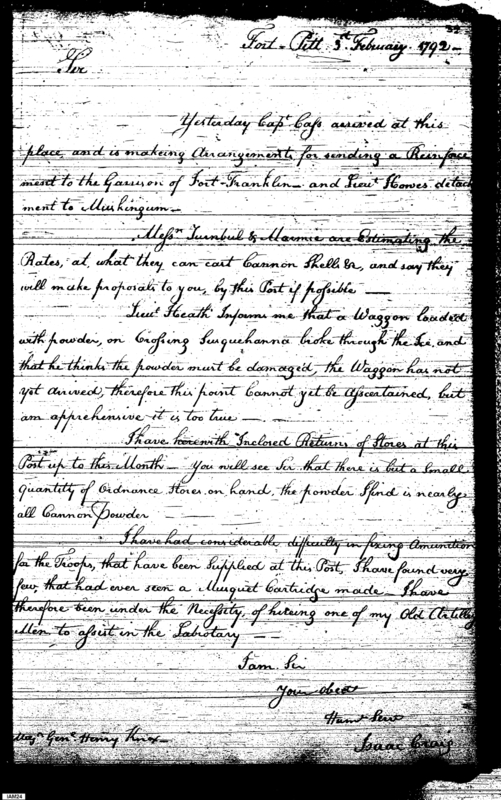 32
Fort-Pitt 3d February 1792—
Sir
Yesterday Capt Cass arrived at this
place, and is makeing Arrangements for sending a Reinforce
ment to the Garrison of Fort-Franklin— and Lieut Howes detach
ment to Muskingum—
Messrs Turnbul & Marmie are Estimating the
Rates, at what they can cast Cannon Shells &c, and say they
will make proposals to you, by this Post if possible —
Lieut Heath Informs me that a Waggon loaded
with powder, on Crossing Susquehanna broke through the Ice, and
that he thinks the powder must be damaged, the Waggon has not
yet arrived, therefore this point Cannot yet be Ascertained, but
am apprehensive it is too true —
I have herewith Inclosed Returns of Stores at this
Post up to this Month — You will see Sir that there is but a Small
quantity of Ordnance Stores on hand, the powder I find is nearly
all Cannon Powder —
I have had considerable difficulty in fixing Amunition
for the Troops, that have been Supplied at this Post, I have found very
few, that had ever seen a Musquet Cartridge made — I have
therefore been under the Necessity, of hireing one of my Old Artillery
Men to assist in the Labrotary — —
I am Sir
Your Obedt
Humb Servt
Isaac Craig
Majr Genl Henry Knox—
IAM24